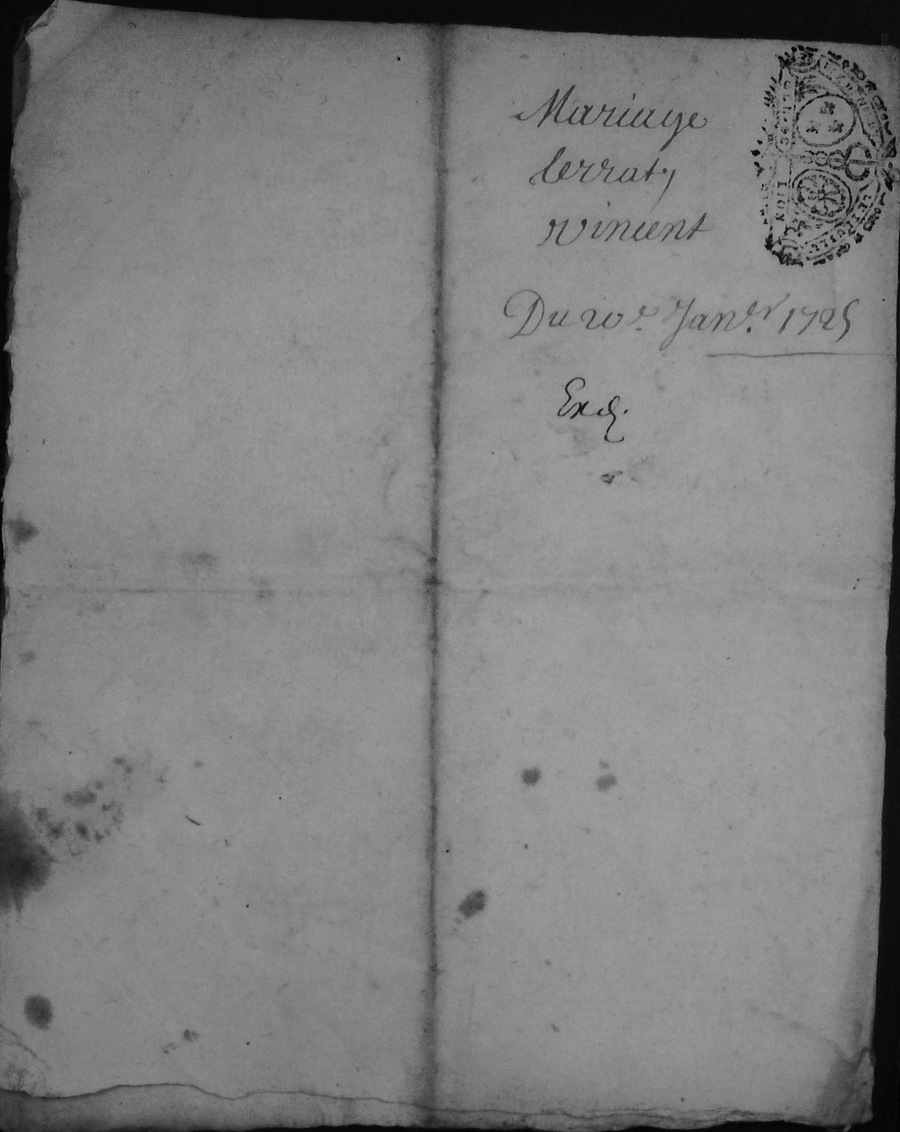 Mariage
Cerrat,
Vincent
Du 20e. Janer. 1725
Exp.